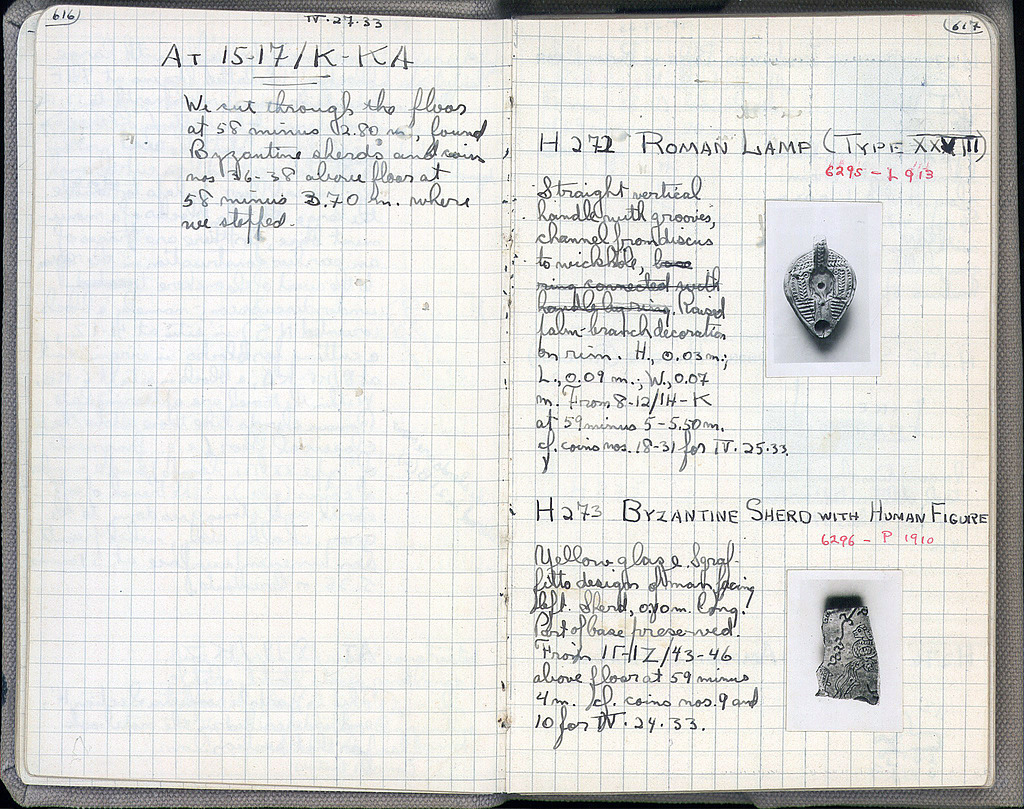 616
IV.27.33
AT 15-17/K-KA
We cut through the floor
at 58 minus 2.80 m., found
Byzantine sherds and coins
nos 36-38 above floor at
58 minus 3.70 m. where
we stopped.
617
H 272 ROMAN LAMP (TYPE XXVIII)
6295 - L 913
Straight vertical
handle with grooves,
channel from discus
to wickhole, base
ring connected with
handle by ring. Raised
palm-branch decoration
on rim. H., 0.03 m.;
L., 0.09 m.; W., 0.07
m. From 8-12/IH-K
at 59 minus 5-5.50 m.
cf. coins nos. 18-31 for IV.25.33.
H 273 BYZANTINE SHERD WITH HUMAN FIGURE
6296 - P 1910
Yellow glaze. Sgraf
fitto design of man facing
left. Sherd, 0.10 m. long.
Part of base preserved.
From /43-46
above floor at 59 minus
4 m. cf. coins nos. 9 and
10 for IV.24.33.